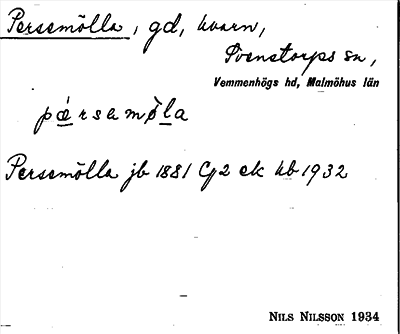 Persemölla, gd, kvarn,
Svenstorps sn,
Vemmenhögs hd, Malmöhus län
pærsamøla
Persemölla jb 1881 G2 ek kb 1932
NILS NILSSON 1934